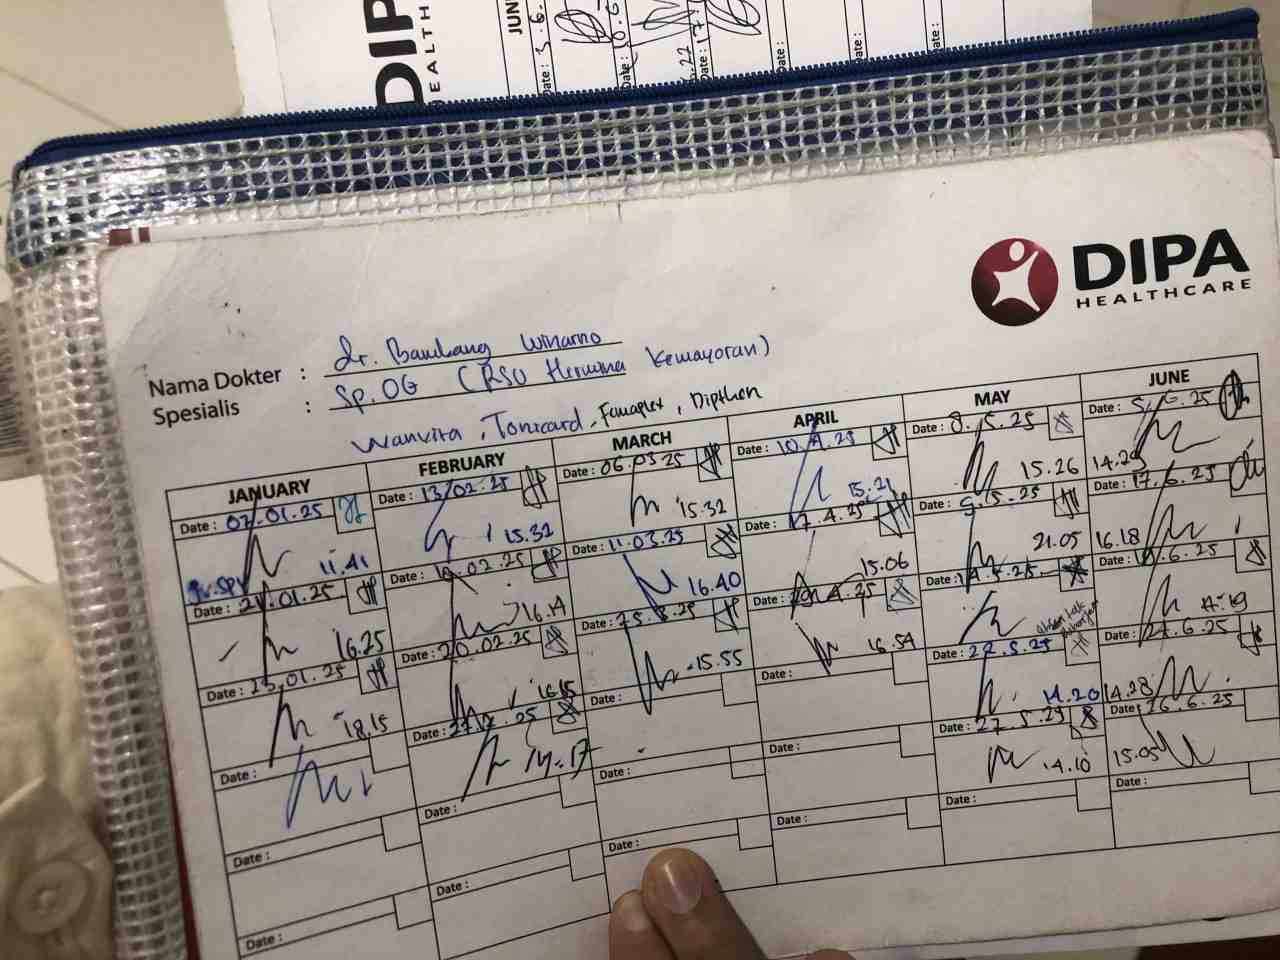 DIPA
HEALTHCARE
Nama Dokter : dr. Bambang Winarno
Spesialis : Sp.OG (RSU Hermina Kemayoran)
Wankita, Tonicard, Famaplex, Dipthen
JANUARY
Date : 02.01.25
11.41
Date : 21.01.25
16.25
Date : 23.01.25
18.15
Date :
Date :
Date :
FEBRUARY
Date : 13/02.25
15.32
Date : 02.25
16.14
Date : 20.02.25
16.15
Date : 27.2.25
14.17
Date :
Date :
MARCH
Date : 06.03.25
15.32
Date : 11.03.25
16.40
Date : 25.3.25
15.55
Date :
Date :
Date :
APRIL
Date : 10.4.25
15.21
Date : 17.4.25
15.06
Date : 29.4.25
16.54
Date :
Date :
Date :
MAY
Date : 8.5.25
15.26
Date : 9.5.25
21.05
Date : 14.5.25
Date : 22.5.25
14.20
Date : 27.5.25
14.10
Date :
JUNE
Date : 5.6.25
14.29
Date : 17.6.25
16.18
Date : 6.25
17.19
Date : 24.6.25
14.28
Date : 26.6.25
15.05
Date :
DIPA
EALTH
JUN
Date : 3.6.
Date :
Date :
Date :
Date :
Date :